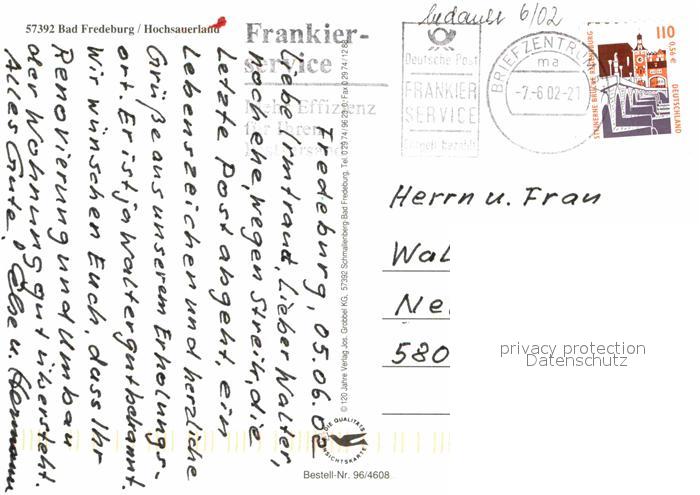 57392 Bad Fredeburg / Hochsauerland
bedankt 6/02
Frankier-
service
Mehr Effizienz
für Ihren
Postversand
Deutsche Post
FRANKIER
SERVICE
schnell bezahlt
BRIEFZENTRUM
ma
-7.-6 02-21
110
0,56 €
DEUTSCHLAND
STEINERNE BRÜCKE REGENSBURG
Fredeburg, 05.06.02
Liebe Irmtraud, Lieber Walter,
noch ehe, wegen Streik, die
letzte Post abgeht, ein
Lebenszeichen und herzliche
Grüße aus unserem Erholungs-
ort. Er ist ja Walter gut bekannt.
Wir wünschen Euch, dass Ihr
Renovierung und Umbau
der Wohnung gut übersteht.
Alles Gute, Else u. Hermann
© 120 Jahre Verlag Jos. Grobbel KG, 57392 Schmallenberg-Bad Fredeburg, Tel. 0 29 74/96 29-0, Fax 0 29 74/12 82
Herrn u. Frau
Wal
Ne
580
privacy protection
Datenschutz
DIE QUALITÄTS
ANSICHTSKARTE
Bestell-Nr. 96/4608